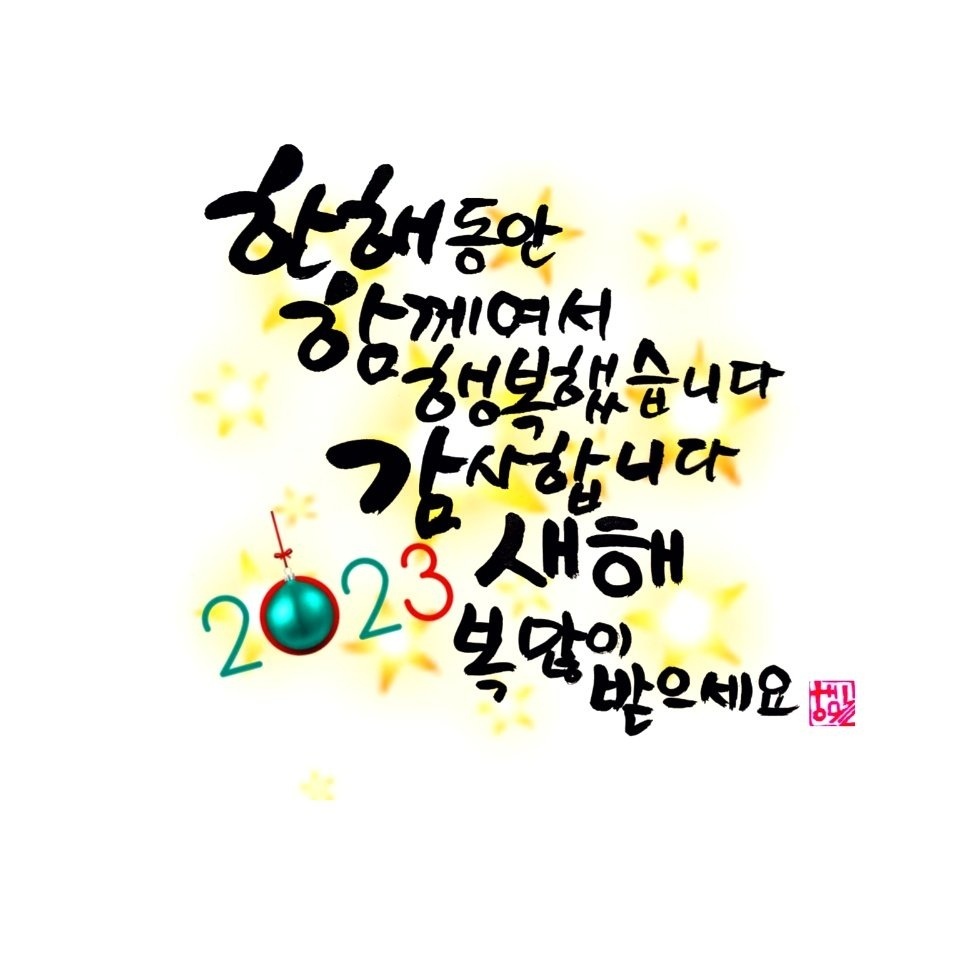 한해동안
함께여서
행복했습니다
감사합니다
2023 새해
복많이
받으세요